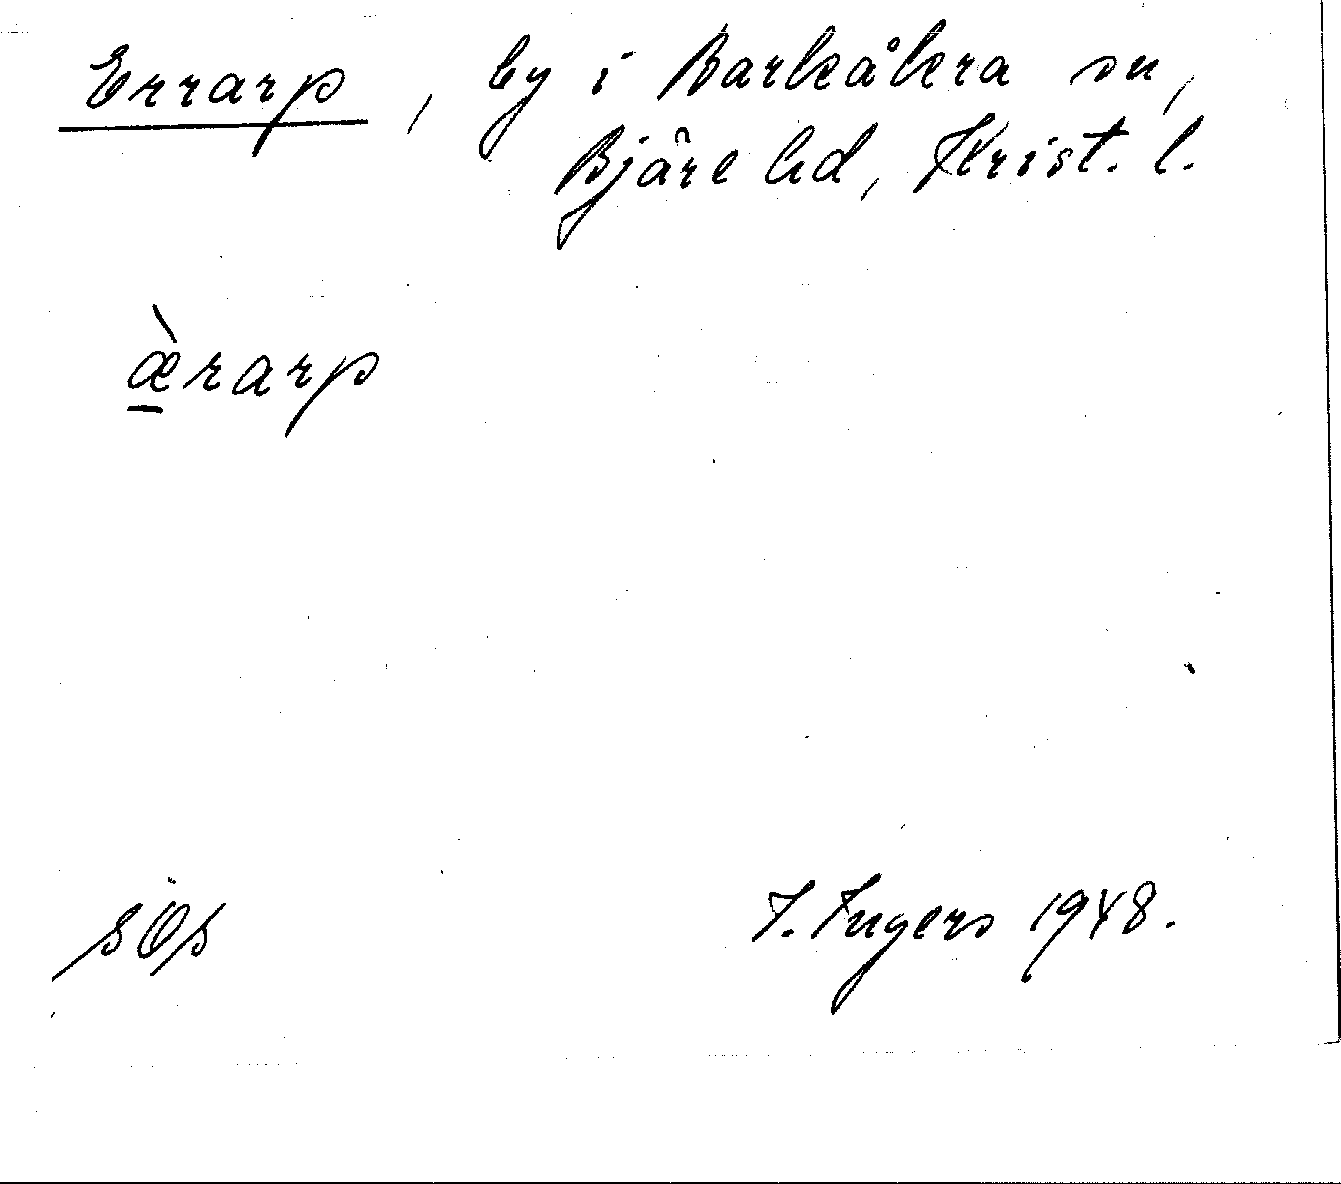 Errarp, by i Barkåkra sn,
Bjäre hd, Krist. l.
æ̠̀rarp
I. Ingers 1948.